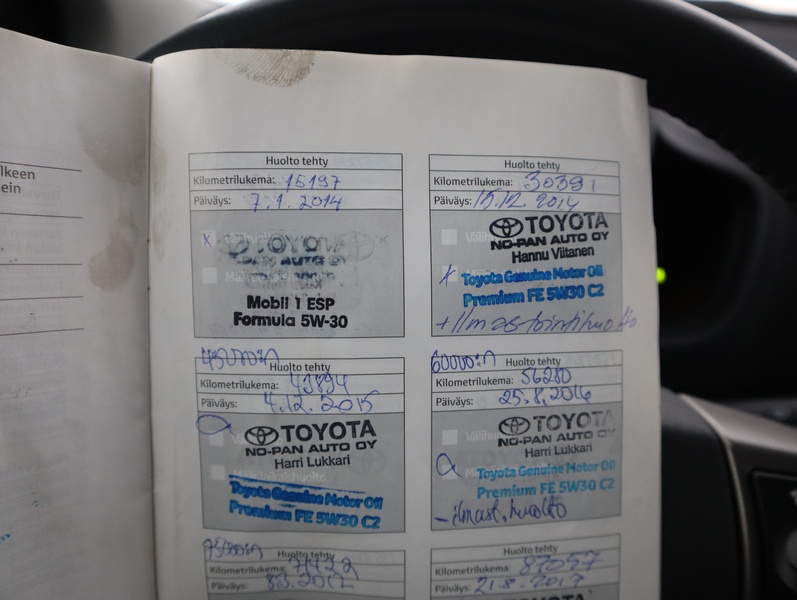 lkeen
ein
Huolto tehty
Kilometrilukema: 15197
Päiväys: 7.1.2014
x TOYOTA
Mobil 1 ESP
Formula 5W-30
Huolto tehty
Kilometrilukema: 30391
Päiväys: 15.12.2014
TOYOTA
NO-PAN AUTO OY
Hannu Viitanen
x Toyota Genuine Motor Oil
Premium FE 5W30 C2
+Ilmastointihuolto
45000:n Huolto tehty
Kilometrilukema: 43894
Päiväys: 4.12.2015
TOYOTA
NO-PAN AUTO OY
Harri Lukkari
Toyota Genuine Motor Oil
Premium FE 5W30 C2
60000:n Huolto tehty
Kilometrilukema: 56280
Päiväys: 25.8.2016
TOYOTA
NO-PAN AUTO OY
Harri Lukkari
Toyota Genuine Motor Oil
Premium FE 5W30 C2
-ilmast.huolto
75000:n Huolto tehty
Kilometrilukema:
Päiväys:
Huolto tehty
Kilometrilukema: 87057
Päiväys: 21.8.2017